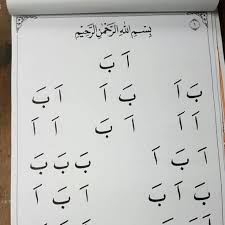 ١
بِسْمِ اللهِ الرَّحْمٰنِ الرَّحِيْمِ
اَ بَ
بَ اَ بَ اَ اَ بَ
اَ اَ اَ بَ اَ اَ
بَ بَ بَ
بَ اَ اَ اَ بَ اَ